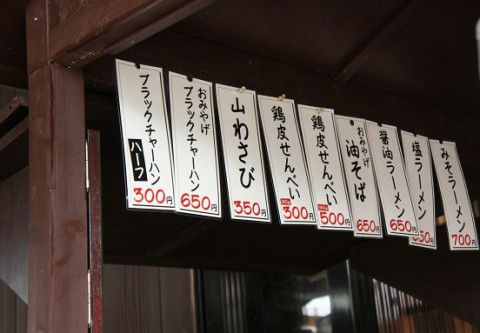 みそラーメン
700円
塩ラーメン
650円
醤油ラーメン
650円
おみやげ
油そば
650円
鶏皮せんべい
500円
鶏皮せんべい
300円
山わさび
350円
おみやげ
ブラックチャーハン
650円
ブラックチャーハン
ハーフ
300円